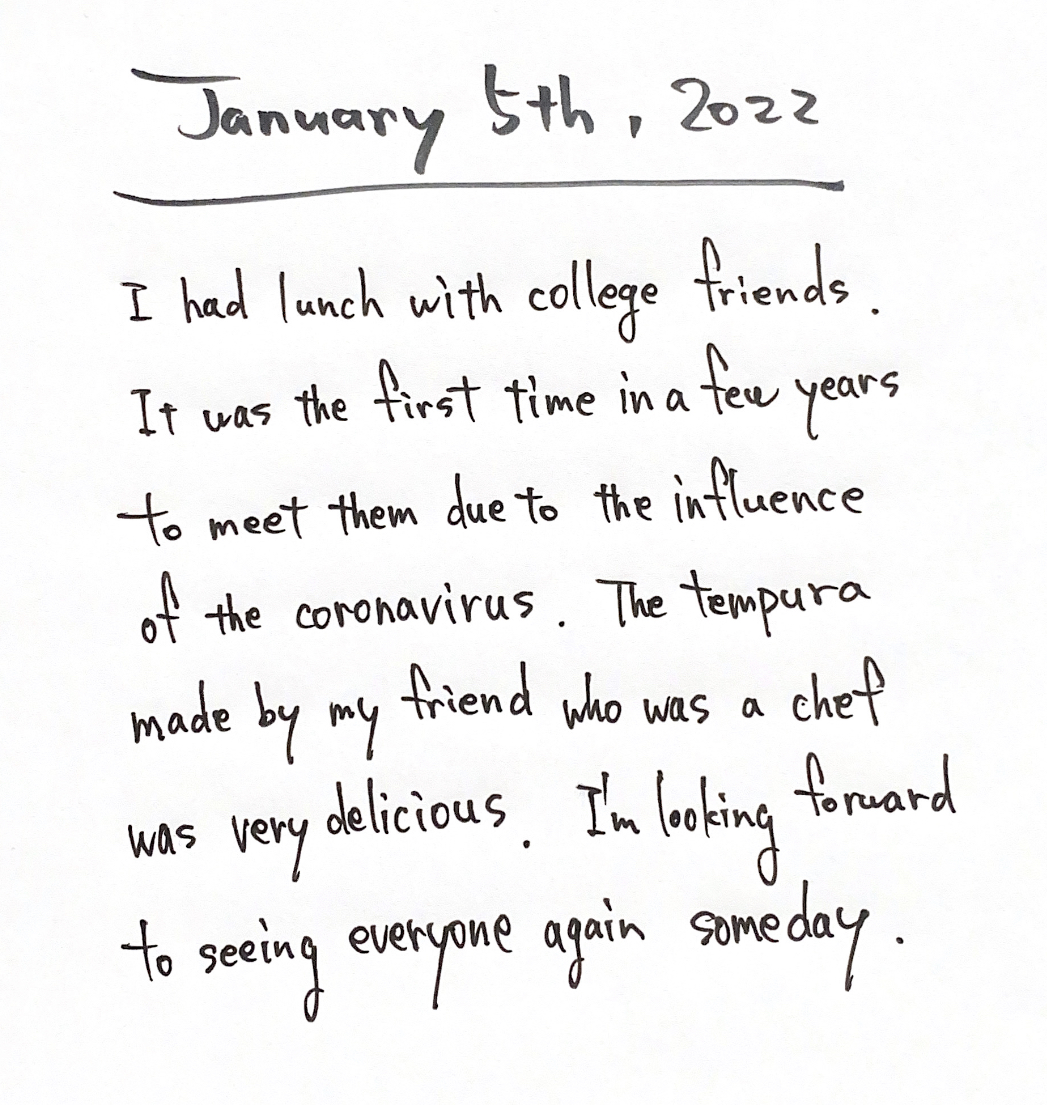 January 5th, 2022
I had lunch with college friends.
It was the first time in a few years
to meet them due to the influence
of the coronavirus. The tempura
made by my friend who was a chef
was very delicious. I'm looking forward
to seeing everyone again someday.